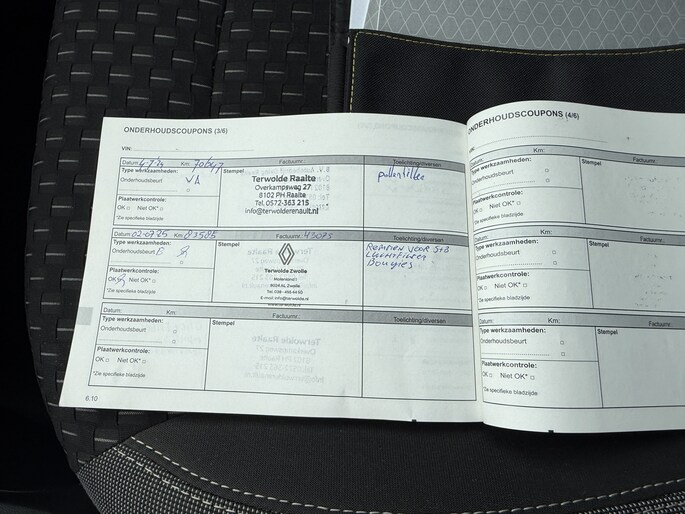 ONDERHOUDSCOUPONS (3/6)
VIN:
Datum: 4-7-24 Km: 70647 Factuurnr.
Type werkzaamheden: Stempel Toelichting/diversen
Onderhoudsbeurt A
Plaatwerkcontrole:
OK □ Niet OK* □
*Zie specifieke bladzijde
Terwolde Raalte
Overkampsweg 27
8102 PH Raalte
Tel. 0572-363 215
info@terwolderenault.nl
pollenfilter
Datum: 02-07-25 Km: 83586 Factuurnr. 43075
Type werkzaamheden: Stempel Toelichting/diversen
Onderhoudsbeurt B
Plaatwerkcontrole:
OK Niet OK* □
*Zie specifieke bladzijde
Terwolde Zwolle
8034 AL Zwolle
Remmen voor S+B
Luchtfilter
Bougies
Datum: Km: Factuurnr.
Type werkzaamheden: Stempel Toelichting/diversen
Onderhoudsbeurt □
Plaatwerkcontrole:
OK □ Niet OK* □
*Zie specifieke bladzijde
6.10
ONDERHOUDSCOUPONS (4/6)
VIN:
Datum: Km:
Type werkzaamheden: Stempel
Onderhoudsbeurt □
Plaatwerkcontrole:
OK □ Niet OK* □
*Zie specifieke bladzijde
Datum: Km:
Type werkzaamheden: Stempel
Onderhoudsbeurt □
Plaatwerkcontrole:
OK □ Niet OK* □
*Zie specifieke bladzijde
Datum: Km:
Type werkzaamheden: Stempel
Onderhoudsbeurt □
Plaatwerkcontrole:
OK □ Niet OK* □
*Zie specifieke bladzijde